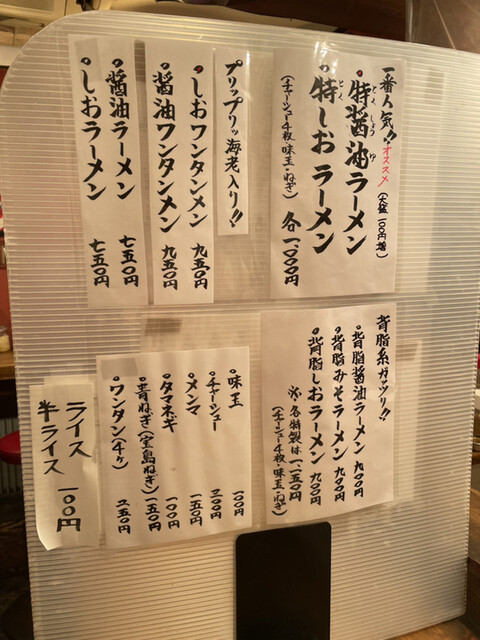 一番人気!! オススメ (大盛 一〇〇円増)
特醤油ラーメン
とくしょうゆ
特しおラーメン
とく
(チャーシュー4枚・味玉・ねぎ) 各一、〇〇〇円
プリップリッ海老入り!!
しおワンタンメン 九五〇円
醤油ワンタンメン 九五〇円
醤油ラーメン 七五〇円
しおラーメン 七五〇円
背脂系ガッツリ!!
背脂醤油ラーメン 九〇〇円
背脂みそラーメン 九〇〇円
背脂しおラーメン 九〇〇円
※各特製は一、一五〇円
(チャーシュー4枚・味玉・ねぎ)
味玉 一〇〇円
チャーシュー 三〇〇円
メンマ 一五〇円
タマネギ 一〇〇円
青ねぎ(宝島ねぎ) 一五〇円
ワンタン(4ケ) 二五〇円
ライス
半ライス 一〇〇円